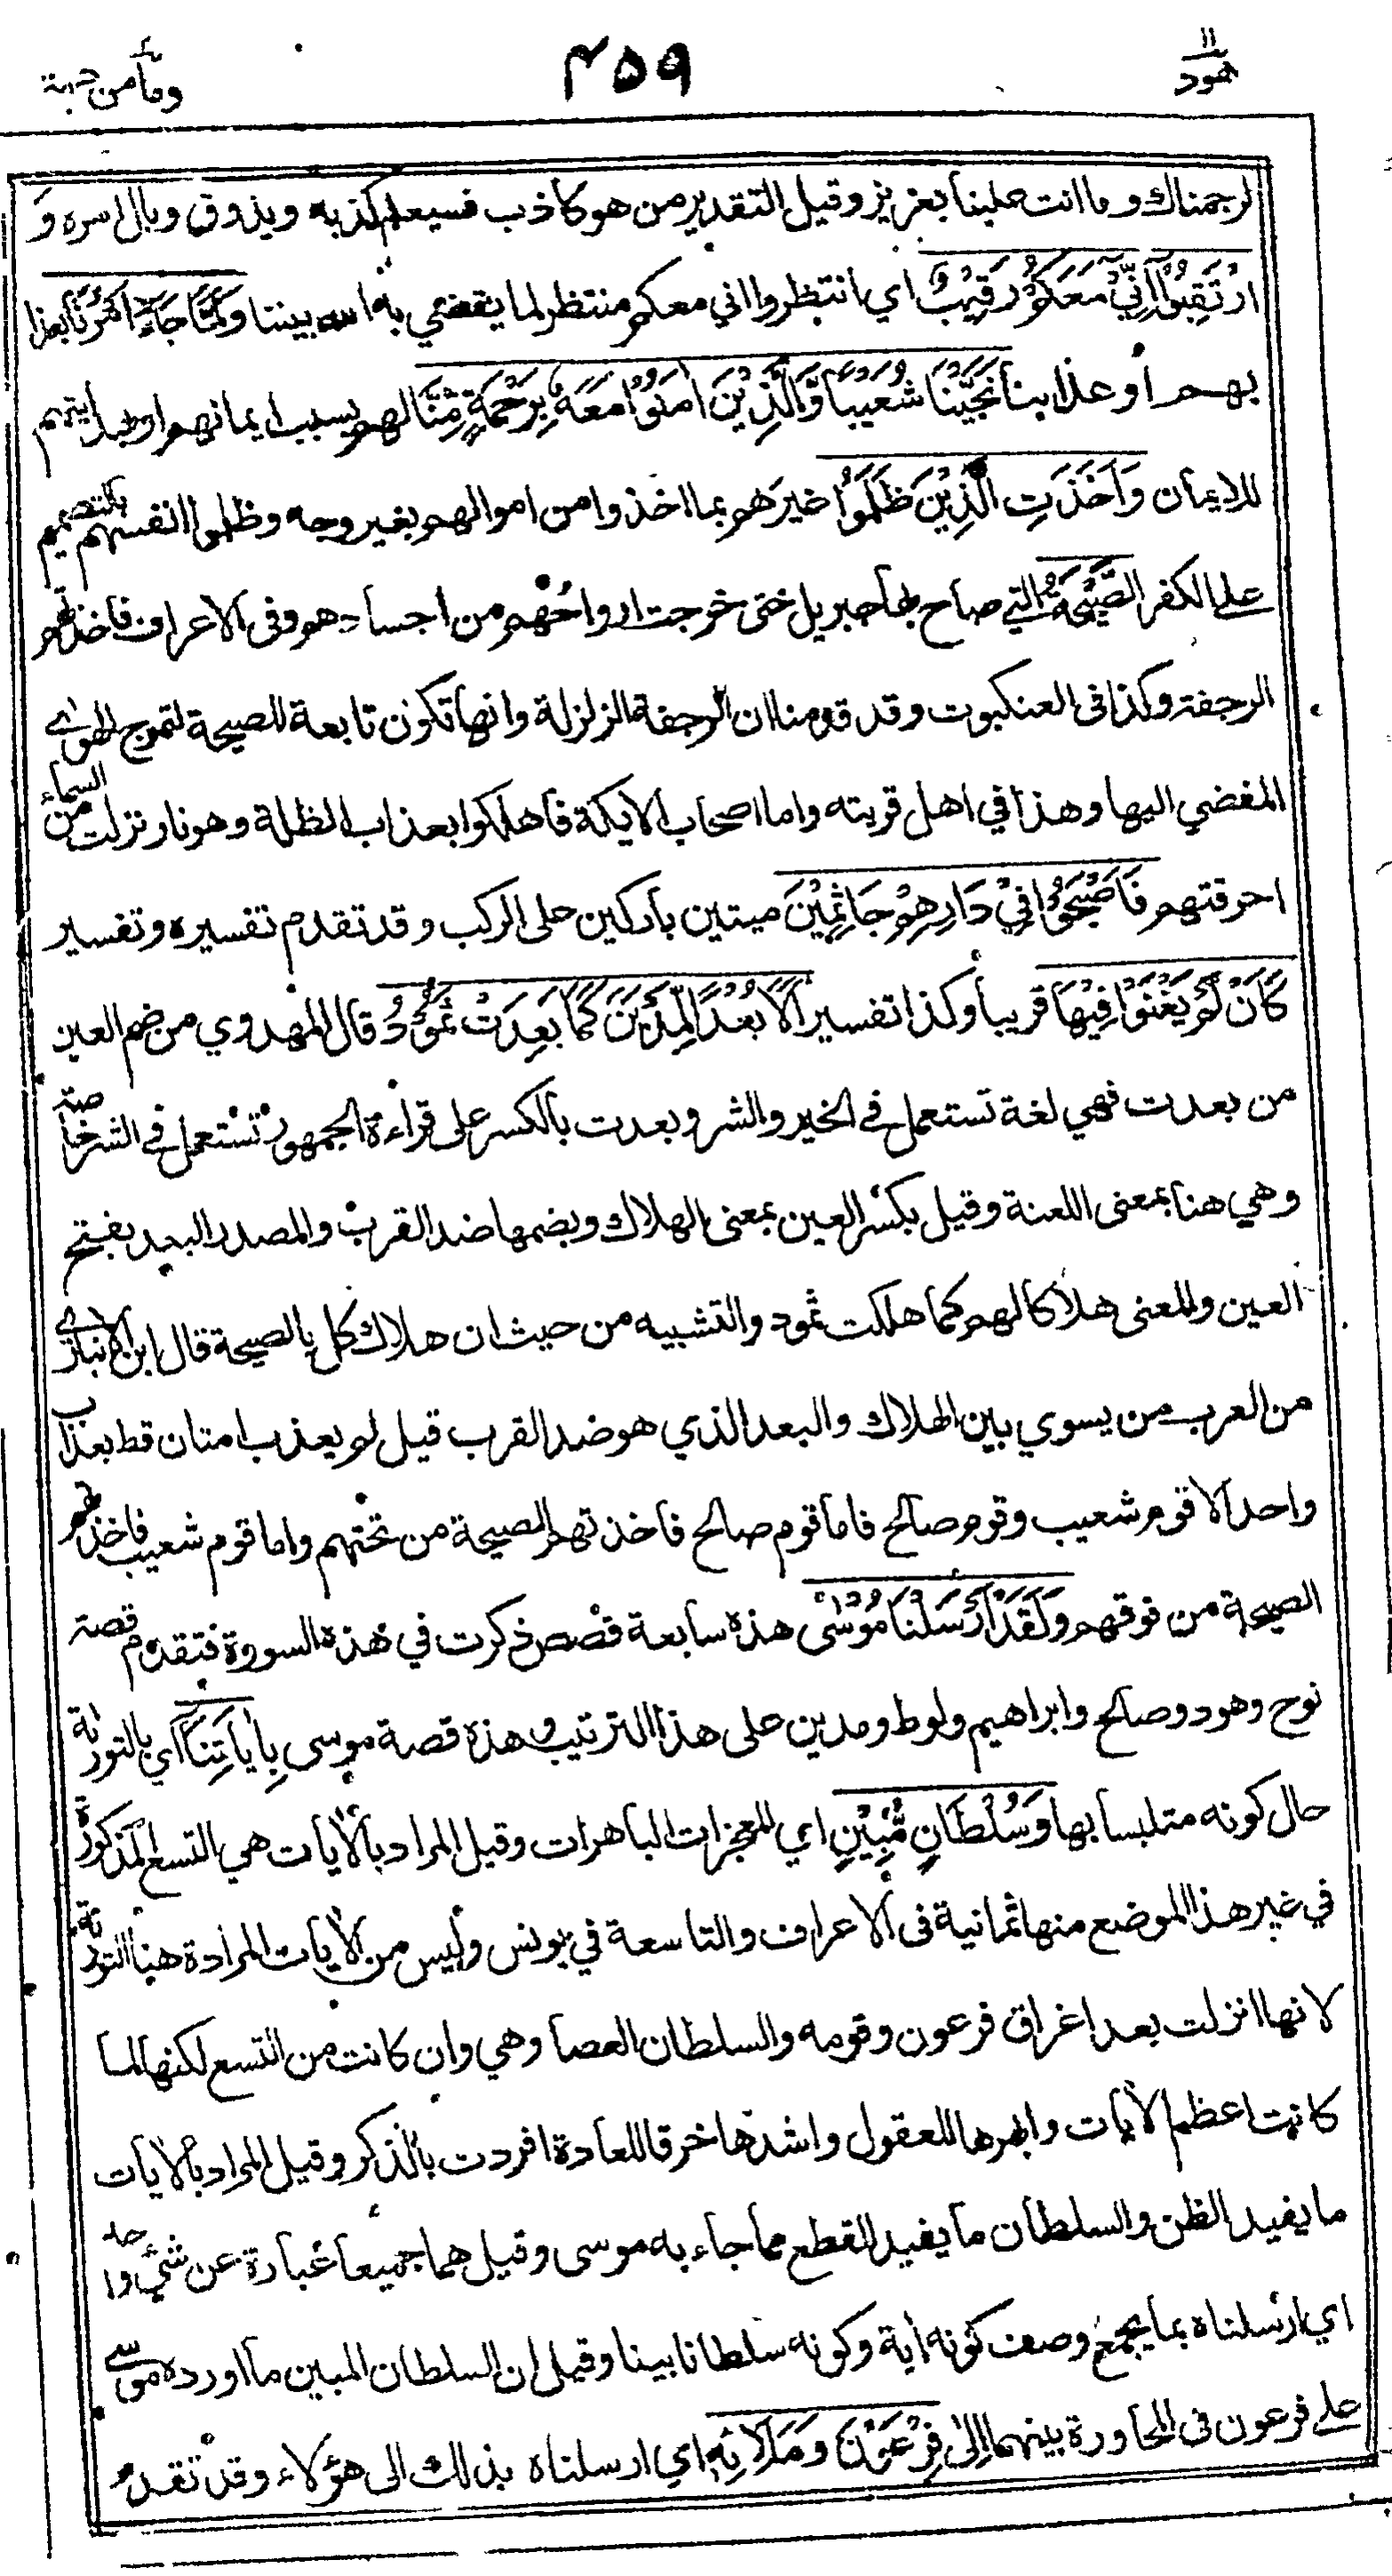 ١١
هود
٤٥٩
وما من دابة
لرجمناك وما انت علينا بعزيز وقيل التقدير من هو كاذب فسيعلم كذبه ويذوق وبال امره وَ
ارْتَقِبُوْآ اِنِّيْ مَعَكُمْ رَقِيْبٌ اي انتظروا اني معكم منتظر لما يقضي به الله بيننا وَلَمَّا جَآءَ اَمْرُنَا بعذا
بهم او عذابنا نَجَّيْنَا شُعَيْبًا وَّالَّذِيْنَ اٰمَنُوْا مَعَهٗ بِرَحْمَةٍ مِّنَّا لهم بسبب ايمانهم او بهدايتهم
للايمان وَاَخَذَتِ الَّذِيْنَ ظَلَمُوا غيرهم بما اخذوا من اموالهم بغير وجه وظلموا انفسهم بالتصميم
على الكفر الصَّيْحَةُ التي صاح بها جبريل حتى خرجت ارواحهم من اجسادهم وفى الاعراف فاخذتهم
الرجفة وكذا فى العنكبوت وقد قدمنا ان الرجفة الزلزلة وانها تكون تابعة للصيحة لتموج الهواء
المفضي اليها وهذا في اهل قريته واما اصحاب الايكة فاهلكوا بعذاب الظلة وهو نار نزلت من السماء
احرقتهم فَاَصْبَحُوْا فِيْ دَارِهِمْ جَاثِمِيْنَ ميتين باركين على الركب وقد تقدم تفسيره وتفسير
كَاَنْ لَّمْ يَغْنَوْا فِيْهَا قريبا وكذا تفسير اَلَا بُعْدًا لِّمَدْيَنَ كَمَا بَعِدَتْ ثَمُوْدُ قال المهدوي من ضم العين
من بعدت فهي لغة تستعمل في الخير والشر وبعدت بالكسر على قراءة الجمهور تستعمل في الشر خاصة
وهي هنا بمعنى اللعنة وقيل بكسر العين بمعنى الهلاك وبضمها ضد القرب والمصدر البعد بفتح
العين والمعنى هلاكا لهم كما هلكت ثمود والتشبيه من حيث ان هلاك كل بالصيحة قال ابن الانباري
من العرب من يسوي بين الهلاك والبعد الذي هو ضد القرب قيل لم يعذب امتان قط بعذاب
واحد الا قوم شعيب وقوم صالح فاما قوم صالح فاخذتهم الصيحة من تحتهم واما قوم شعيب فاخذتهم
الصيحة من فوقهم وَلَقَدْ اَرْسَلْنَا مُوْسٰى هذه سابعة قصص ذكرت في هذه السورة فتقدم قصة
نوح وهود وصالح وابراهيم ولوط ومدين على هذا الترتيب وهذه قصة موسى بِاٰيَاتِنَا اي بالتورىة
حال كونه متلبسا بها وَسُلْطَانٍ مُّبِيْنٍ اي المعجزات الباهرات وقيل المراد بالأيات هي التسع المذكورة
في غير هذا الموضع منها ثمانية فى الاعراف والتاسعة في يونس وليس من الأيات المرادة هنا التورىة
لانها انزلت بعد اغراق فرعون وقومه والسلطان العصا وهي وان كانت من التسع لكنها لما
كانت اعظم الأيات وابهرها للعقول واشدها خرقا للعادة افردت بالذكر وقيل المراد بالأيات
ما يفيد الظن والسلطان ما يفيد القطع مما جاء به موسى وقيل هما جميعا عبارة عن شيء واحد
اي ارسلناه بما يجمع وصف كونه أية وكونه سلطانا بينا وقيل ان السلطان المبين ما اورده موسى
على فرعون فى المحاورة بينهما اِلٰى فِرْعَوْنَ وَمَلَا۟ئِهٖ اي ارسلناه بذلك الى هؤلاء وقد تقدم